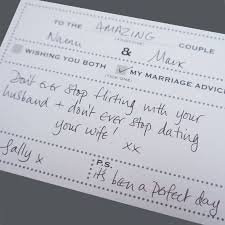 TO THE AMAZING COUPLE
& Marx
WISHING YOU BOTH ✓ MY MARRIAGE ADVICE
Don't ever stop flirting with your
husband + don't ever stop dating
your wife! xx
Sally x
P.S.
it's been a perfect day